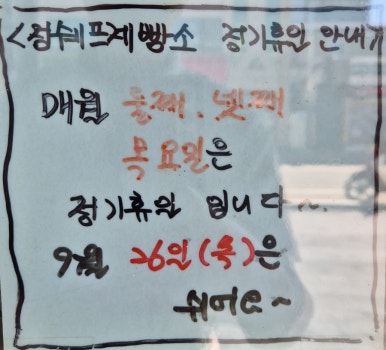 <정쉐프제빵소 정기휴일 안내>
매월 둘째. 넷째
목요일은
정기휴일 입니다~.
9월 26일(목)은
쉬어요~